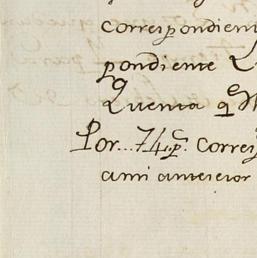 correspondient
pondiente
Quenta q
Por... 74. p. corres
ami anterior